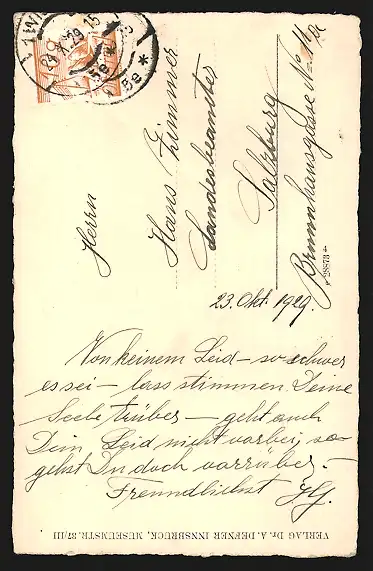 WIEN
23.X.29.15
5e
Herrn
Hans Zimmer
Landesbeamter
Salzburg
Brunnhausgasse No 11a
28873
23. Okt. 1929.
Von keinem Leid – so schwer
es sei – lass stimmen Deine
Seele trüber – geht auch
Dein Leid nicht vorbei, so
gehst Du doch vorrüber. –
Freundlichst
VERLAG Dr. A. DEFNER INNSBRUCK, MUSEUMSTR. 37/III